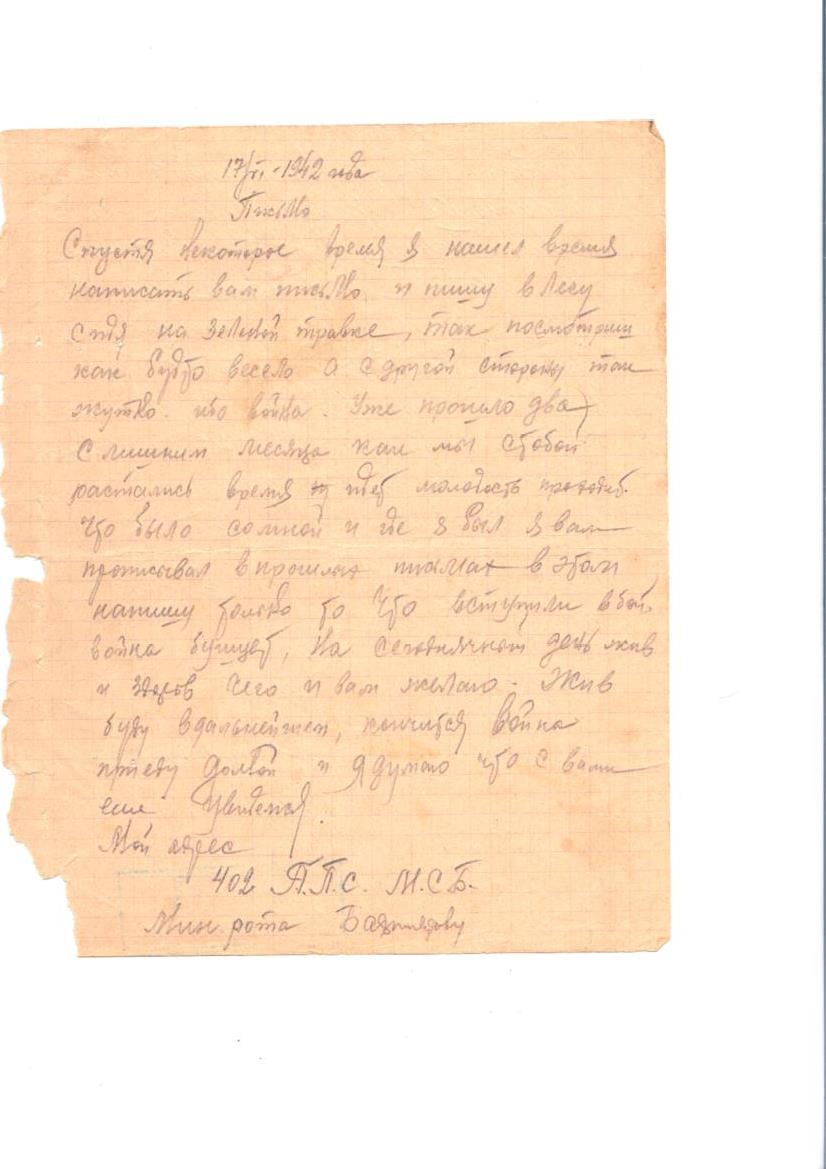 17/VI-1942 года
Письмо
Спустя некоторое время я нашел время
написать вам письмо, и пишу в лесу
сидя на зеленой травке, так посмотриш
как будто весело а с другой стороны так
жутко. ибо война. Уже прошло два
с лишним месяца как мы стобой
растались время идет молодость проходит.
Что было сомной и где я был я вам
прописывал в прошлых письмах в этом
напишу только то что вступили в бой.
война бушует, На сегоднячный день жив
и здоров чего и вам желаю. Жив
буду вдальнейшем, кончится война
приеду домой и я думаю что с вами
еше увидемся.
Мой адрес
402 П.П.С. М.С.Б.
Мин. рота